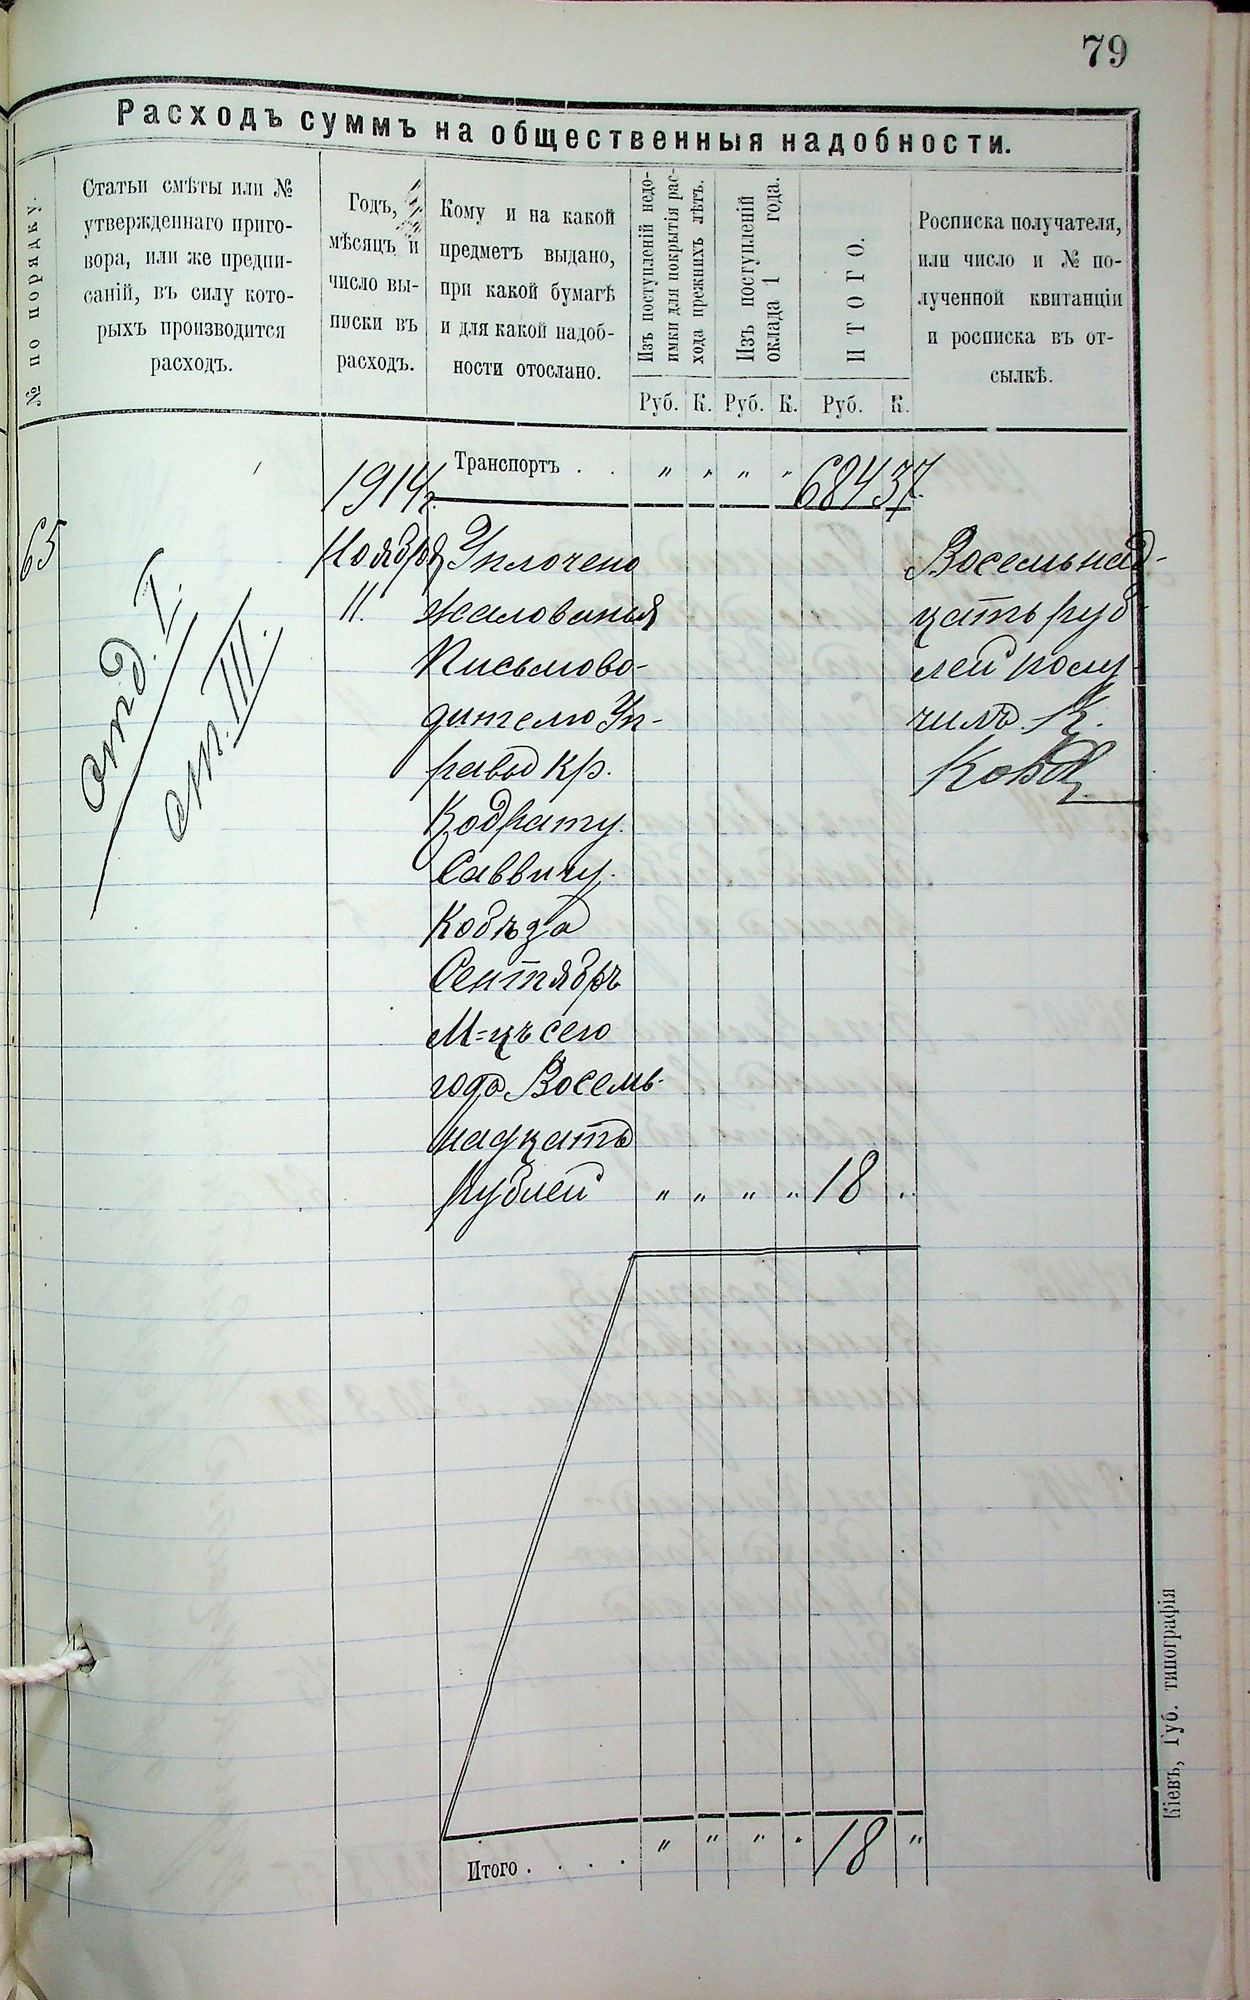 79
Расходъ суммъ на общественныя надобности.
№ по порядку.
Статьи смѣты или №
утвержденнаго приго-
вора, или же предпи-
саній, въ силу кото-
рыхъ производится
расходъ.
Годъ,
мѣсяцъ и
число вы-
писки въ
расходъ.
Кому и на какой
предметъ выдано,
при какой бумагѣ
и для какой надоб-
ности отослано.
Изъ поступленій недо-
имки для покрытія рас-
хода прежнихъ лѣтъ.
Изъ поступленій
оклада 1 года.
ИТОГО.
Росписка получателя,
или число и № по-
лученной квитанціи
и росписка въ от-
сылкѣ.
Руб. К. Руб. К. Руб. К.
Транспортъ . . " " " " 684 37
1914 г.
65
отд. I.
ст. III.
Ноября
11.
Уплочено
жалованья
Письмово-
дителю Уп-
равы Кр.
Кодрату
Саввичу
Кобъ за
Сентябрь
М=цъ сего
года Восемь-
надцать
рублей " " " " 18 "
Восемьнад-
цать руб-
лей полу-
чилъ К.
Коба
Итого . . . . " " " " 18 "
Кіевъ, Губ. типографія